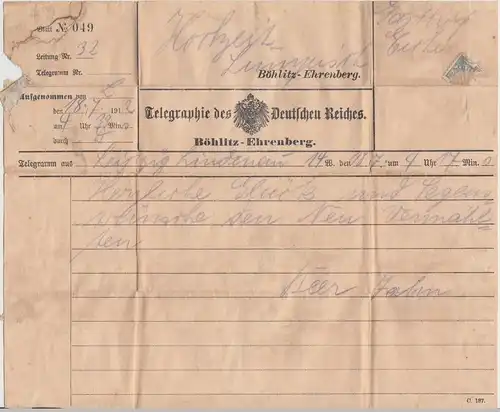 Blatt № 049
Leitung Nr. 32
Telegramm Nr.
Aufgenommen von
den 18. 7. 1912
Uhr Min.
durch
Hochzeit
Böhlitz-Ehrenberg.
Telegraphie des Deutschen Reiches.
Böhlitz-Ehrenberg.
Telegramm aus Leipzig Lindenau 14 W. den 18/7 um 9 Uhr 17 Min.
Herzliche Glück und Segens
wünsche den Neu Vermähl=
ten
Beer
C. 187.